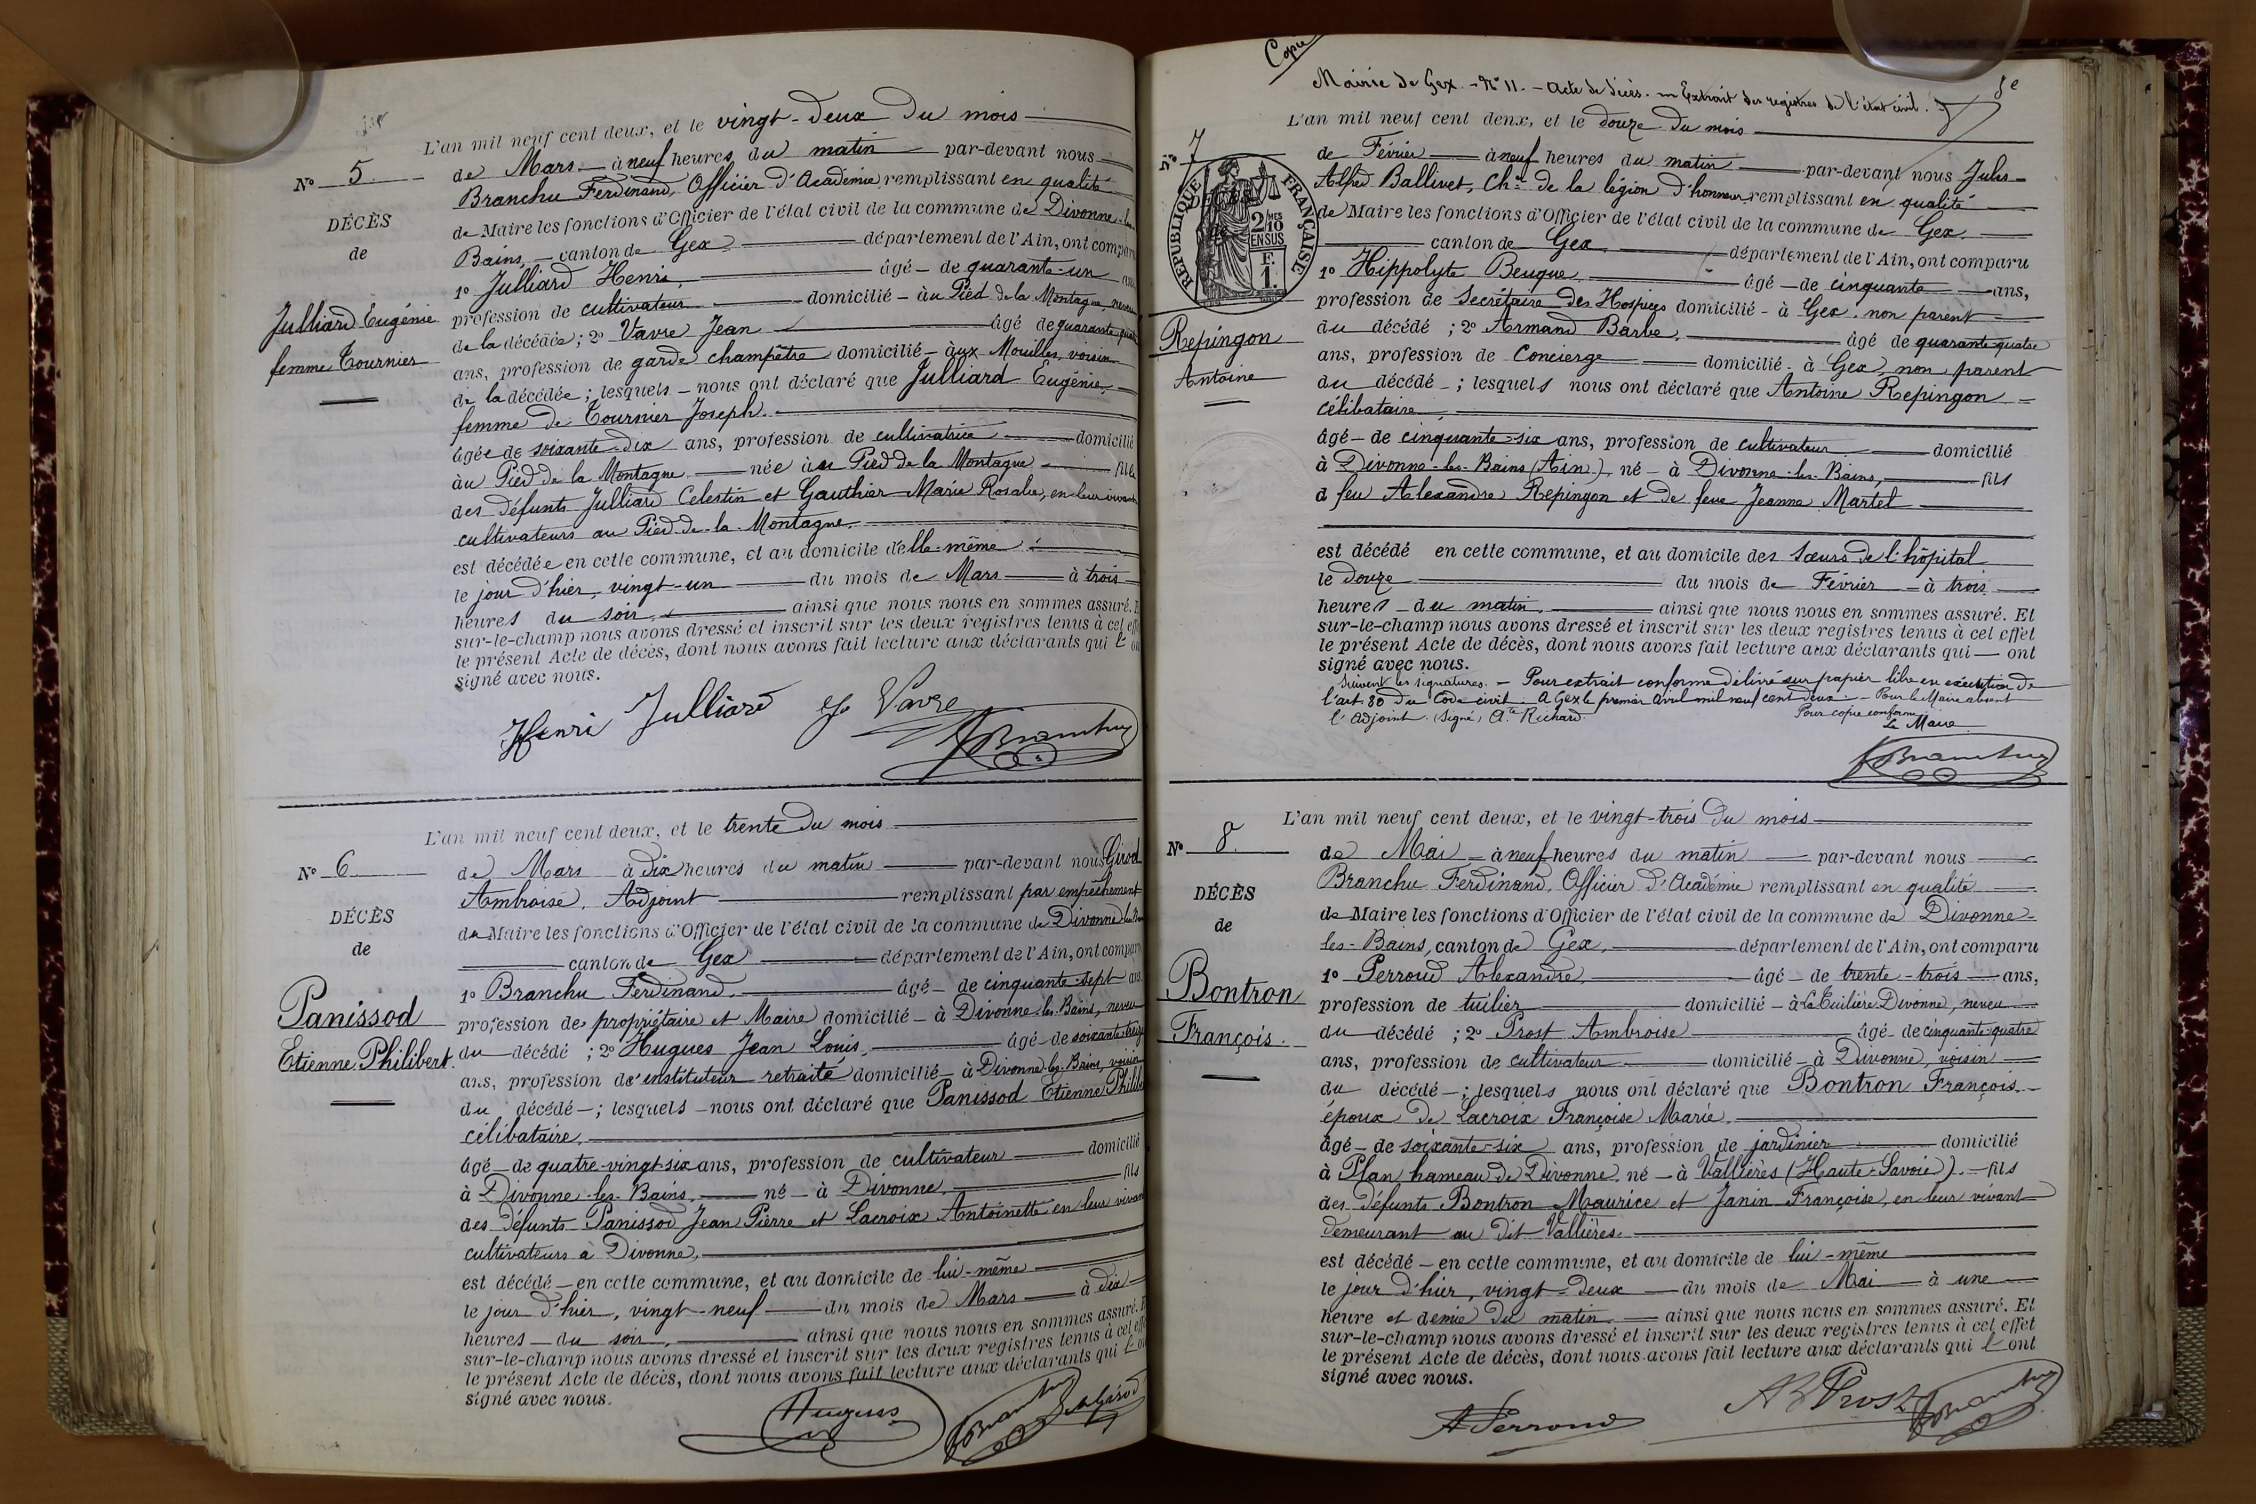 L'an mil neuf cent deux, et le vingt-deux du mois
de Mars à neuf heures du matin par-devant nous
Branchu Ferdinand, Officier d'Académie remplissant en qualité
de Maire les fonctions d'Officier de l'état civil de la commune de Divonne-les-
Bains, canton de Gex département de l'Ain, ont comparu
1° Julliard Henri, âgé de quarante-un ans
profession de cultivateur domicilié au Pied de la Montagne, neveu
de la décédée; 2° Vavre Jean âgé de quarante-quatre
ans, profession de garde champêtre domicilié aux Mouilles, voisin
de la décédée; lesquels nous ont déclaré que Julliard Eugénie,
femme de Tournier Joseph.
âgée de soixante-dix ans, profession de cultivatrice domicilié
au Pied de la Montagne née au Pied de la Montagne fille
des défunts Julliard Celestin et Gauthier Marie Rosalie, en leur vivant
cultivateurs au Pied-de-la-Montagne.
est décédée en cette commune, et au domicile d'elle-même
le jour d'hier, vingt-un du mois de Mars à trois
heures du soir, ainsi que nous nous en sommes assuré. Et
sur-le-champ nous avons dressé et inscrit sur les deux registres tenus à cet effet
le présent Acte de décès, dont nous avons fait lecture aux déclarants qui l'ont
signé avec nous.
Henri Julliard
Vavre
FBranchu
N° 5
DÉCÈS
de
Julliard Eugénie
femme Tournier
L'an mil neuf cent deux, et le trente du mois
de Mars à dix heures du matin par-devant nous Girod
Ambroise, Adjoint remplissant par empêchement
du Maire les fonctions d'Officier de l'état civil de la commune de Divonne-les-Bains
canton de Gex département de l'Ain, ont comparu
1° Branchu Ferdinand, âgé de cinquante-sept ans
profession de propriétaire et Maire domicilié à Divonne-les-Bains, neveu
du décédé; 2° Hugues Jean Louis, âgé de soixante-treize
ans, profession d'instituteur retraité domicilié à Divonne-les-Bains, voisin
du décédé; lesquels nous ont déclaré que Panissod Etienne Philibert
célibataire,
âgé de quatre-vingt-six ans, profession de cultivateur domicilié
à Divonne-les-Bains, né à Divonne, fils
des défunts Panissod Jean Pierre et Lacroix Antoinette en leur vivant
cultivateurs à Divonne,
est décédé en cette commune, et au domicile de lui-même
le jour d'hier, vingt-neuf du mois de Mars à dix
heures du soir, ainsi que nous nous en sommes assuré. Et
sur-le-champ nous avons dressé et inscrit sur les deux registres tenus à cet effet
le présent Acte de décès, dont nous avons fait lecture aux déclarants qui l'ont
signé avec nous.
Hugues
FBranchu
Girod
N° 6
DÉCÈS
de
Panissod
Etienne Philibert.
Copie
Mairie de Gex. - N° 11. - Acte de décès. - Extrait des registres de l'état civil.
L'an mil neuf cent deux, et le douze du mois
de Février à neuf heures du matin par-devant nous Jules-
Alfred Ballivet, Chr de la légion d'honneur remplissant en qualité
de Maire les fonctions d'Officier de l'état civil de la commune de Gex.
canton de Gex département de l'Ain, ont comparu
1° Hippolyte Beuque âgé de cinquante ans,
profession de Secrétaire des Hospices domicilié à Gex, non parent
du décédé; 2° Armand Barbe, âgé de quarante-quatre
ans, profession de Concierge domicilié à Gex, non parent
du décédé; lesquels nous ont déclaré que Antoine Repingon
célibataire,
âgé de cinquante-six ans, profession de cultivateur domicilié
à Divonne-les-Bains (Ain) né à Divonne-les-Bains, fils
d feu Alexandre Repingon et de feue Jeanne Martel
est décédé en cette commune, et au domicile des Sœurs de l'hôpital
le douze du mois de Février à trois
heures du matin, ainsi que nous nous en sommes assuré. Et
sur-le-champ nous avons dressé et inscrit sur les deux registres tenus à cet effet
le présent Acte de décès, dont nous avons fait lecture aux déclarants qui ont
signé avec nous.
Suivent les signatures. - Pour extrait conforme délivré sur papier libre en exécution de
l'art. 80 du Code civil. A Gex le premier Avril mil neuf cent deux. - Pour le Maire absent
l'Adjoint (signé) Ate Richard.
Pour copie conforme
Le Maire
FBranchu
N° 7
DÉCÈS
de
RÉPUBLIQUE FRANÇAISE
2/10 MES
EN SUS
F.
1.
Repingon
Antoine
L'an mil neuf cent deux, et le vingt-trois du mois
de Mai à neuf heures du matin par-devant nous
Branchu Ferdinand, Officier d'Académie remplissant en qualité
de Maire les fonctions d'Officier de l'état civil de la commune de Divonne-
les-Bains, canton de Gex, département de l'Ain, ont comparu
1° Perroud Alexandre, âgé de trente-trois ans,
profession de tuilier domicilié à La Tuilière Divonne, neveu
du décédé; 2° Prost Ambroise âgé de cinquante-quatre
ans, profession de cultivateur domicilié à Divonne, voisin
du décédé; lesquels nous ont déclaré que Bontron François
époux de Lacroix Françoise Marie.
âgé de soixante-six ans, profession de jardinier domicilié
à Plan, hameau de Divonne, né à Vallières (Haute-Savoie). fils
des défunts Bontron Maurice et Janin Françoise, en leur vivant
demeurant au dit Vallières.
est décédé en cette commune, et au domicile de lui-même
le jour d'hier, vingt-deux du mois de Mai à une
heure et demie du matin, ainsi que nous nous en sommes assuré. Et
sur-le-champ nous avons dressé et inscrit sur les deux registres tenus à cet effet
le présent Acte de décès, dont nous avons fait lecture aux déclarants qui l'ont
signé avec nous.
A Perroud
Prost
FBranchu
N° 8
DÉCÈS
de
Bontron
François.